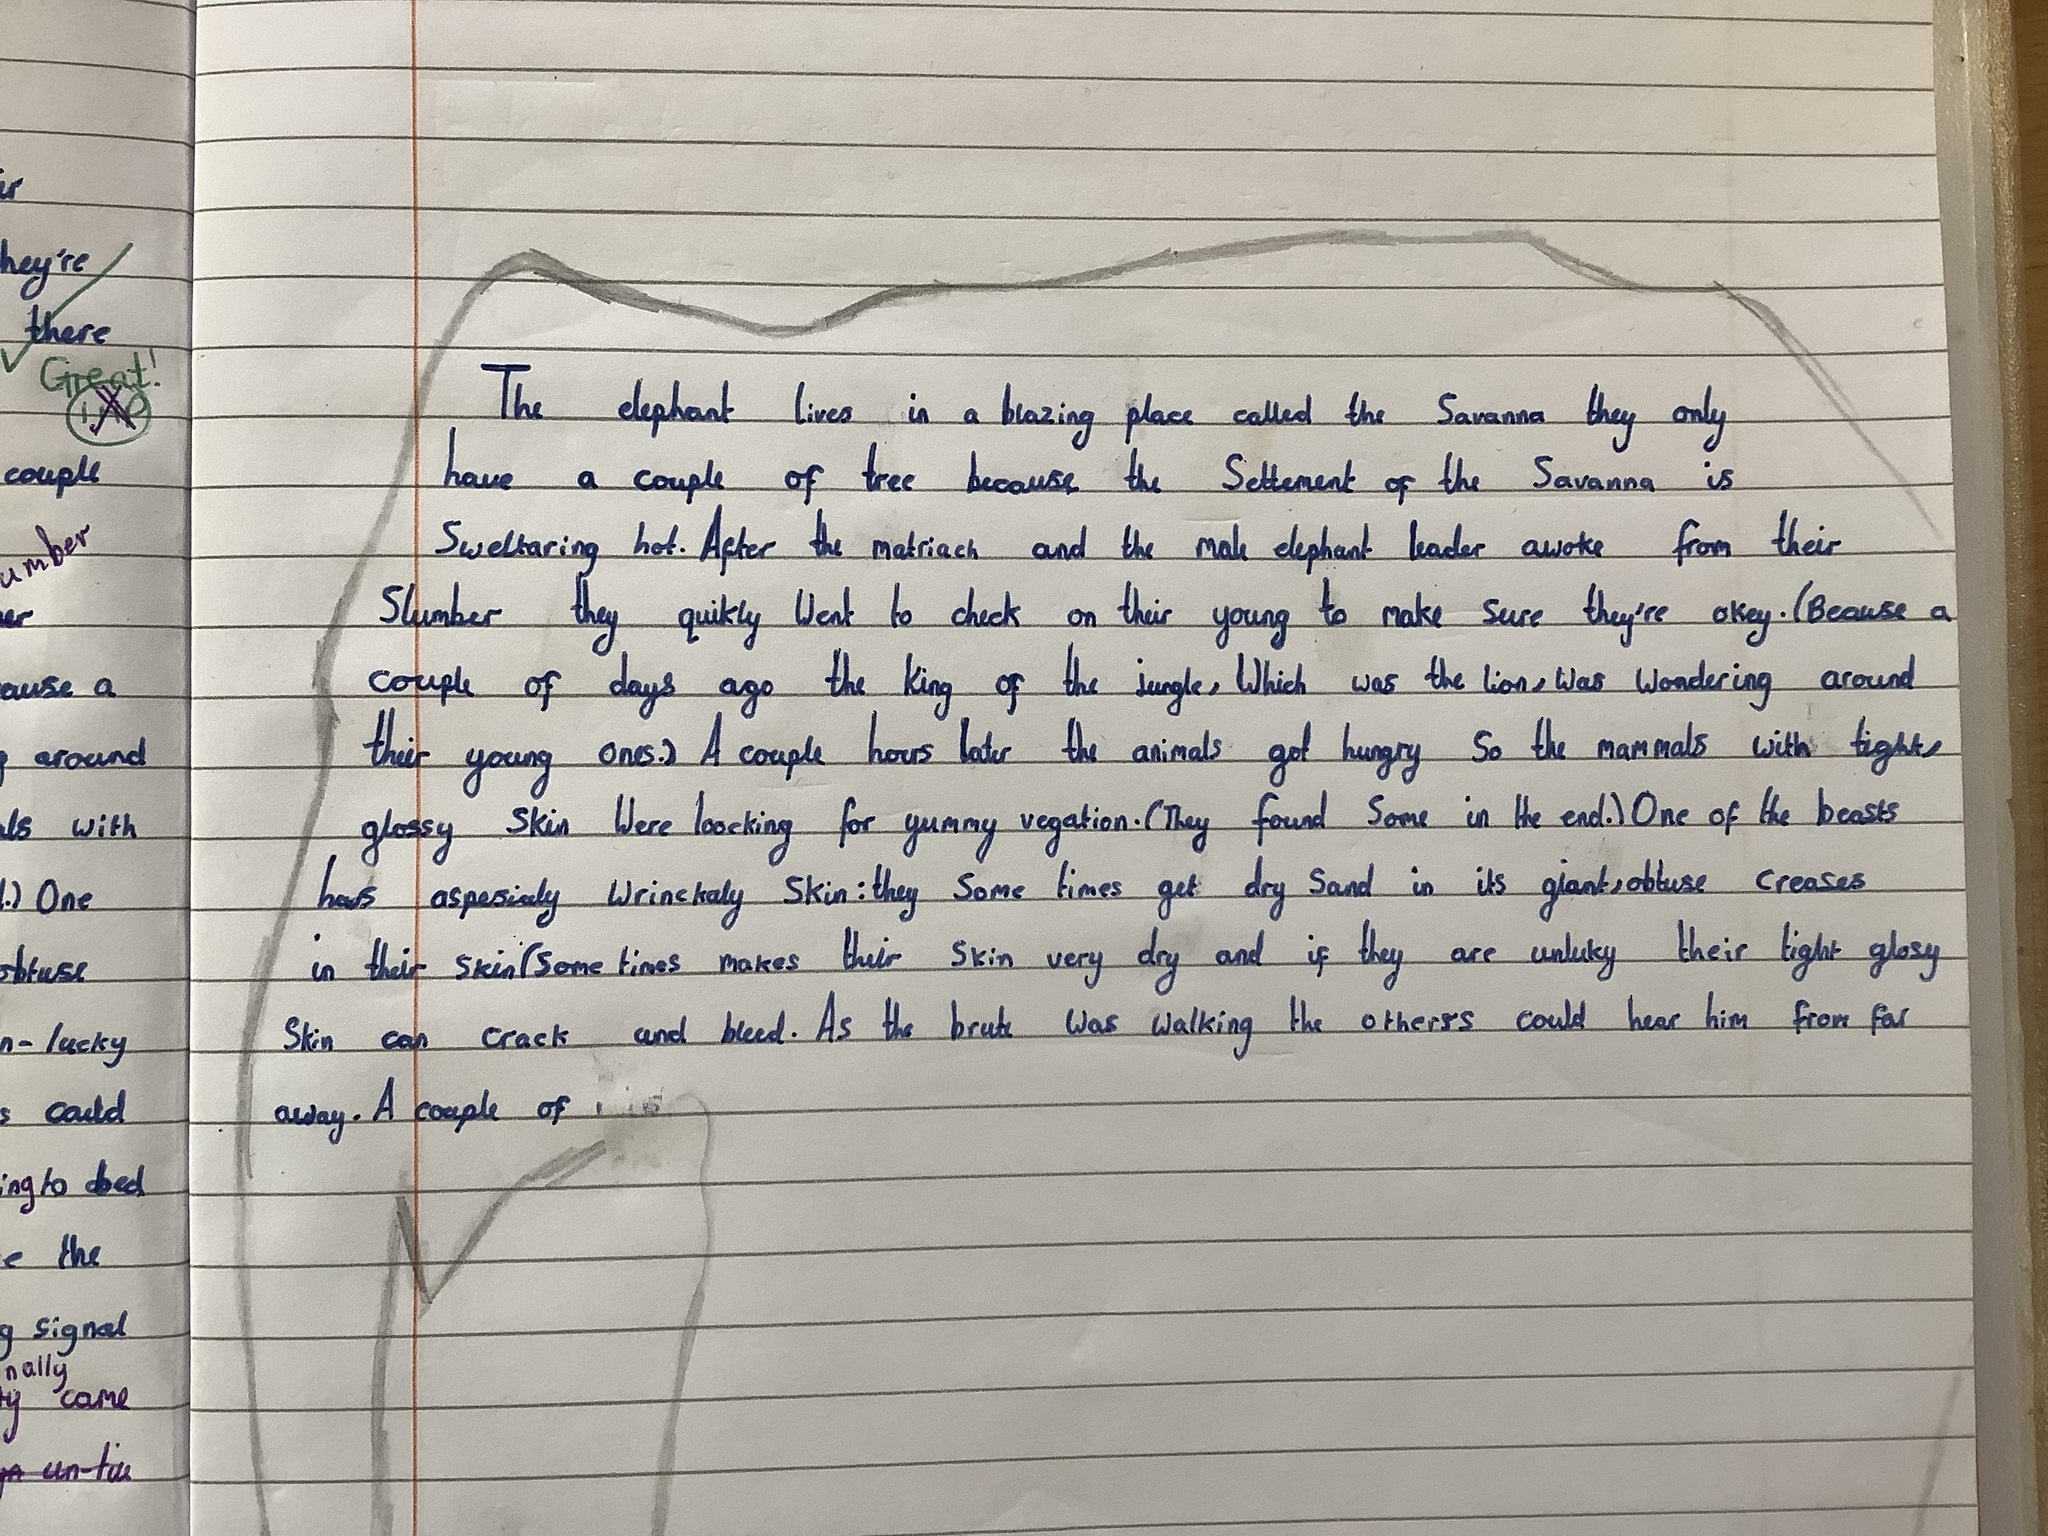 hey're
there
Great!
couple
umber
ause a
around
ls with
l.) One
obtuse
n-lucky
s could
ing to bed
e the
g signal
nally
came
un-tie
The elephant lives in a blazing place called the Savanna they only
have a couple of tree because the Settement of the Savanna is
Sweltaring hot. After the matriach and the male elephant leader awoke from their
Slumber they quikly Went to check on their young to make sure they're okey. (Beause a
couple of days ago the king of the jungle, Which was the lion, was wondering around
their young ones.) A couple hours later the animals got hungry So the mammals with tight,
glossy Skin Were loocking for yummy vegation. (They found Some in the end.) One of the beasts
has aspesialy Wrinckaly Skin: they Some times get dry Sand in its giant, obtuse creases
in their skin (Some times makes their skin very dry and if they are unluky their tight glosy
Skin can crack and bleed. As the brute was walking the others could hear him from far
away. A couple of